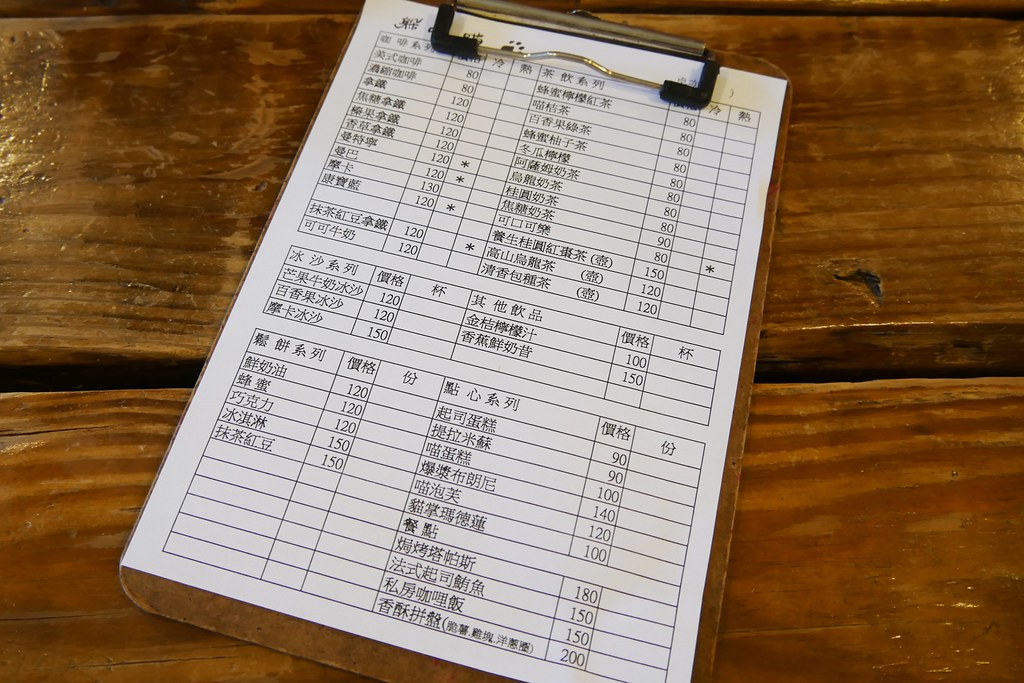 咖啡系列 冷 熱
美式咖啡 80
濃縮咖啡 80
拿鐵 120
焦糖拿鐵 120
榛果拿鐵 120
香草拿鐵 120
曼特寧 120 *
曼巴 120 *
摩卡 130
康寶藍 120 *
抹茶紅豆拿鐵 120
可可牛奶 120 *
茶飲系列 冷 熱
蜂蜜檸檬紅茶 80
喵桔茶 80
百香果綠茶 80
蜂蜜柚子茶 80
冬瓜檸檬 80
阿薩姆奶茶 80
烏龍奶茶 80
桂圓奶茶 80
焦糖奶茶 90
可口可樂 80
養生桂圓紅棗茶(壺) 150 *
高山烏龍茶 (壺) 120
清香包種茶 (壺) 120
冰沙系列 價格 杯
芒果牛奶冰沙 120
百香果冰沙 120
摩卡冰沙 150
其他飲品 價格 杯
金桔檸檬汁 100
香蕉鮮奶昔 150
鬆餅系列 價格 份
鮮奶油 120
蜂蜜 120
巧克力 120
冰淇淋 150
抹茶紅豆 150
點心系列 價格 份
起司蛋糕 90
提拉米蘇 90
喵蛋糕 100
爆漿布朗尼 140
喵泡芙 120
貓掌瑪德蓮 100
餐點
焗烤塔帕斯 180
法式起司鮪魚 150
私房咖哩飯 150
香酥拼盤(脆薯.雞塊.洋蔥圈) 200